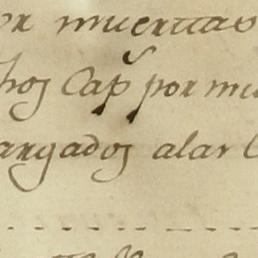 or muertas
hos Cap.s por mu
argados alas